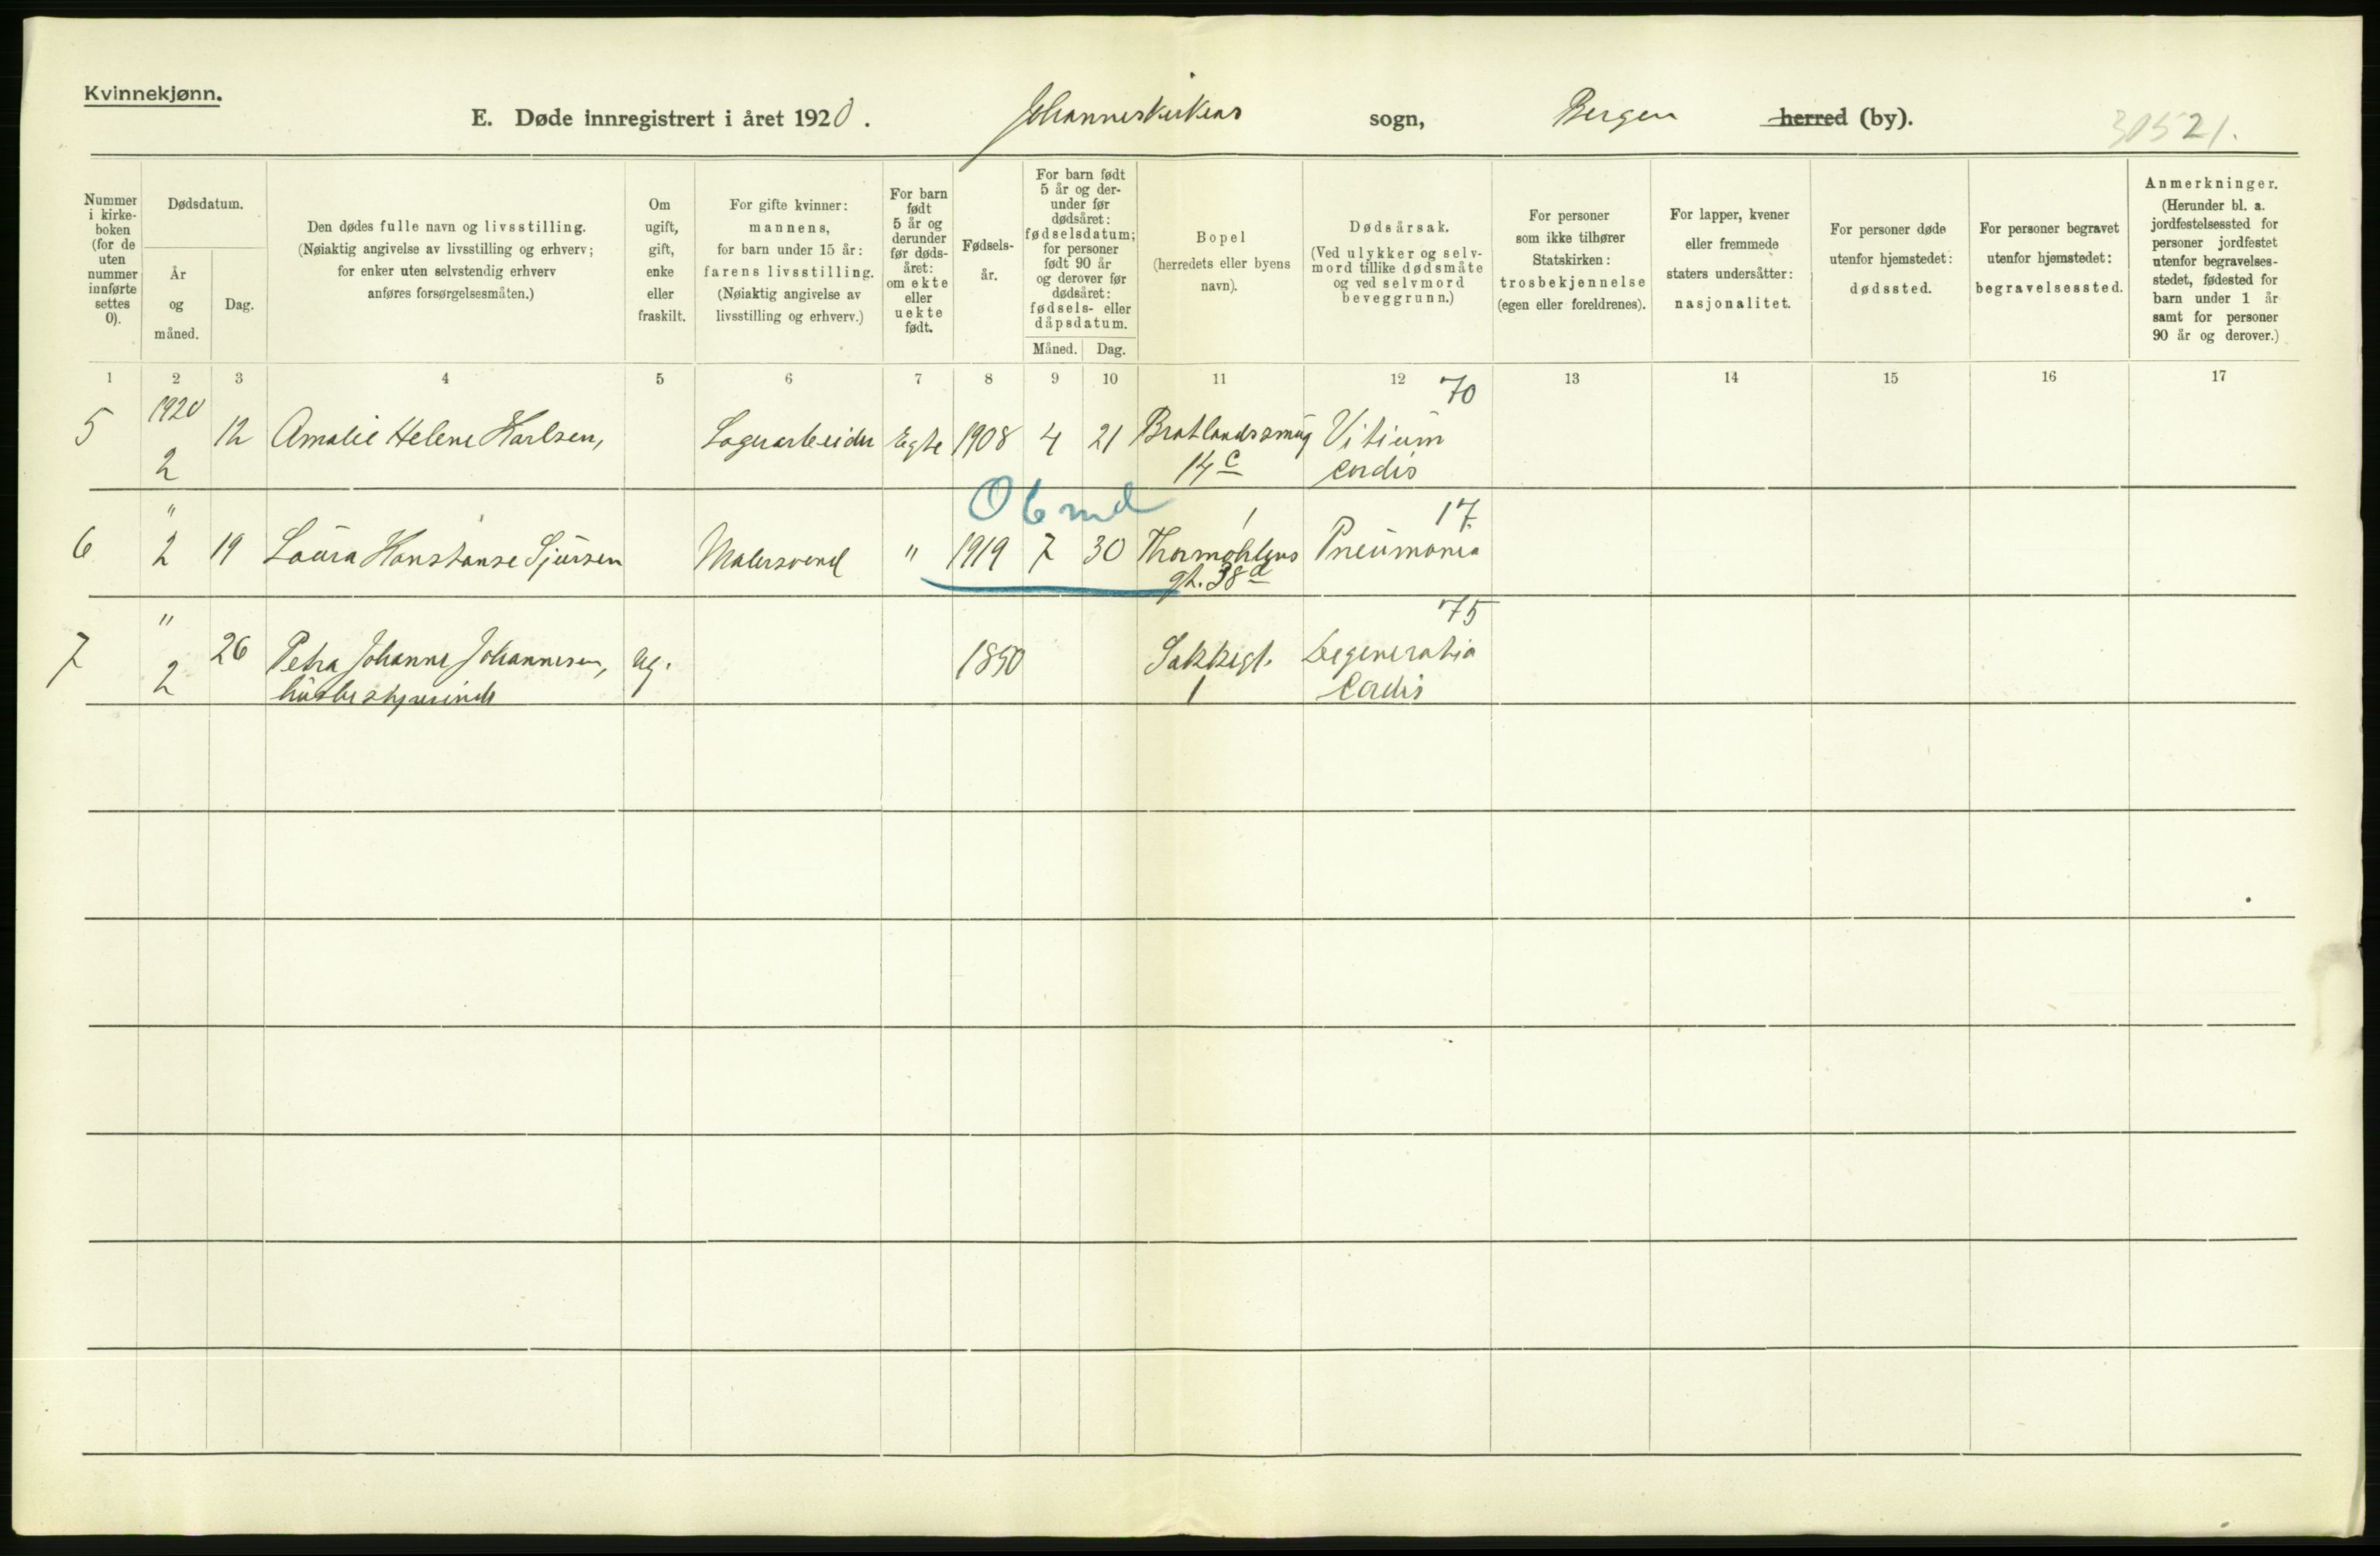 Kvinnekjønn.
E. Døde innregistrert i året 1920. Johanneskirkens sogn, Bergen herred (by). 30521.
Nummer i kirkeboken (for de uten nummer innførte settes 0).
Dødsdatum.
År og måned.
Dag.
Den dødes fulle navn og livsstilling.
(Nøiaktig angivelse av livsstilling og erhverv;
for enker uten selvstendig erhverv
anføres forsørgelsesmåten.)
Om ugift, gift, enke eller fraskilt.
For gifte kvinner:
mannens,
for barn under 15 år:
farens livsstilling.
(Nøiaktig angivelse av
livsstilling og erhverv.)
For barn født 5 år og derunder før dødsåret: om ekte eller uekte født.
Fødselsår.
For barn født 5 år og derunder før dødsåret: fødselsdatum; for personer født 90 år og derover før dødsåret: fødsels- eller dåpsdatum.
Måned. Dag.
Bopel
(herredets eller byens
navn).
Dødsårsak.
(Ved ulykker og selvmord tillike dødsmåte og ved selvmord beveggrunn.)
For personer
som ikke tilhører
Statskirken:
trosbekjennelse
(egen eller foreldrenes).
For lapper, kvener
eller fremmede
staters undersåtter:
nasjonalitet.
For personer døde
utenfor hjemstedet:
dødssted.
For personer begravet
utenfor hjemstedet:
begravelsessted.
Anmerkninger.
(Herunder bl. a.
jordfestelsessted for
personer jordfestet
utenfor begravelses-
stedet, fødested for
barn under 1 år
samt for personer
90 år og derover.)
1 2 3 4 5 6 7 8 9 10 11 12 13 14 15 16 17
1920 70
5 2 12 Amalie Helene Karlsen, Lagerarbeider Egte 1908 4 21 Bratlandssmug 14 c Vitium cordis
0 6 md
" 17
6 2 19 Laura Konstanse Sjursen Malersvend " 1919 7 30 Thormøhlens gt. 38 d Pneumonia
" 75
7 2 26 Petra Johanne Johannesen, ug. 1850 Sakkegt. 1 Degeneratio Cordis
husbestyrerinde